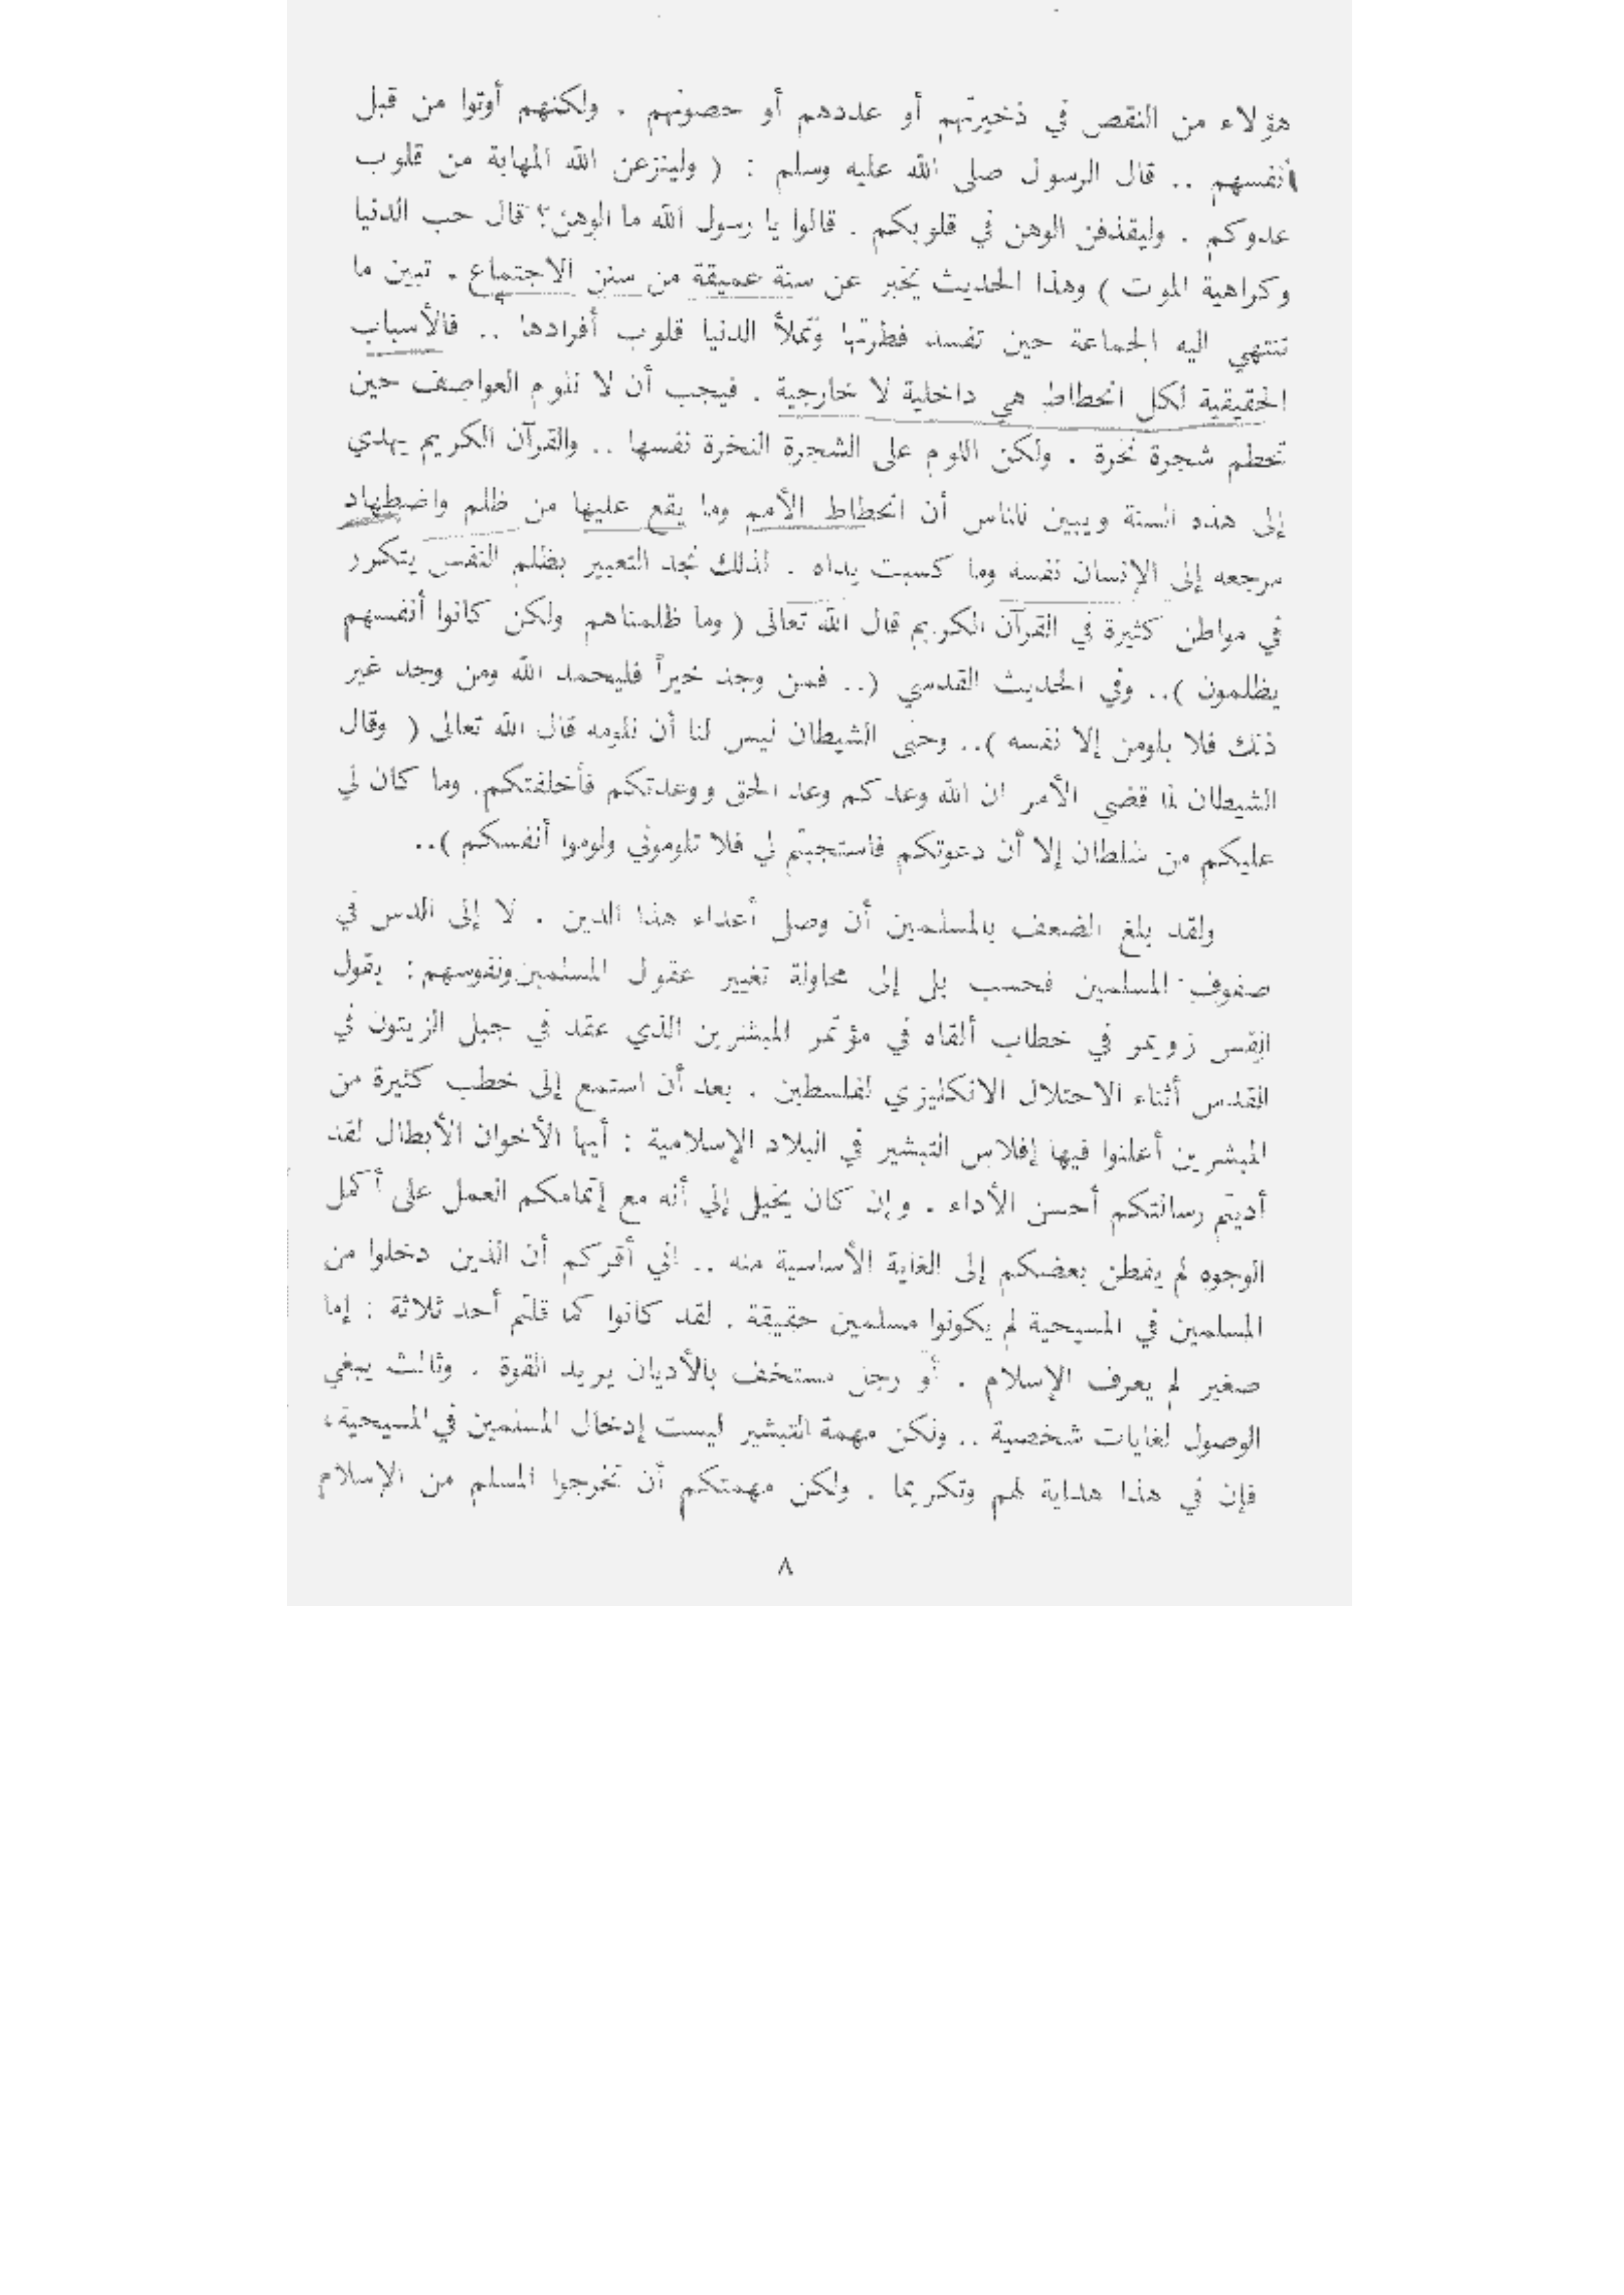 هؤلاء من النقص في ذخيرتهم أو عددهم أو حصونهم . ولكنهم أوتوا من قبل
أنفسهم .. قال الرسول صلى الله عليه وسلم : ( ولينزعن الله المهابة من قلوب
عدوكم . وليقذفن الوهن في قلوبكم . قالوا يا رسول الله ما الوهن؟ قال حب الدنيا
وكراهية الموت ) وهذا الحديث يخبر عن سنة عميقة من سنن الاجتماع . تبين ما
تنتهي اليه الجماعة حين تفسد فطرتها وتملأ الدنيا قلوب أفرادها .. فالأسباب
الحقيقية لكل انحطاط هي داخلية لا خارجية . فيجب أن لا نلوم العواصف حين
تحطم شجرة نخرة . ولكن اللوم على الشجرة النخرة نفسها .. والقرآن الكريم يهدي
إلى هذه السنة ويبين للناس أن انحطاط الأمم وما يقع عليها من ظلم واضطهاد
مرجعه إلى الإنسان نفسه وما كسبت يداه . لذلك نجد التعبير بظلم النفس يتكرر
في مواطن كثيرة في القرآن الكريم قال الله تعالى ( وما ظلمناهم ولكن كانوا أنفسهم
يظلمون ).. وفي الحديث القدسي (.. فمن وجد خيراً فليحمد الله ومن وجد غير
ذلك فلا يلومن إلا نفسه ).. وحتى الشيطان ليس لنا أن نلومه قال الله تعالى ( وقال
الشيطان لما قضي الأمر ان الله وعدكم وعد الحق ووعدتكم فأخلفتكم. وما كان لي
عليكم من سلطان إلا أن دعوتكم فاستجبتم لي فلا تلوموني ولوموا أنفسكم )..
ولقد بلغ الضعف بالمسلمين أن وصل أعداء هذا الدين . لا إلى الدس في
صفوف المسلمين فحسب بل إلى محاولة تغيير عقول المسلمين ونفوسهم : يقول
القس زويمر في خطاب ألقاه في مؤتمر المبشرين الذي عقد في جبل الزيتون في
القدس أثناء الاحتلال الانكليزي لفلسطين . بعد أن استمع إلى خطب كثيرة من
المبشرين أعلنوا فيها إفلاس التبشير في البلاد الإسلامية : أيها الأخوان الأبطال لقد
أديتم رسالتكم أحسن الأداء . وإن كان يخيل إلي أنه مع إتمامكم العمل على أكمل
الوجوه لم يفطن بعضكم إلى الغاية الأساسية منه .. اني أقركم أن الذين دخلوا من
المسلمين في المسيحية لم يكونوا مسلمين حقيقة . لقد كانوا كما قلتم أحد ثلاثة : إما
صغير لم يعرف الإسلام . أو رجل مستخف بالأديان يريد القوة . وثالث يبغي
الوصول لغايات شخصية .. ولكن مهمة التبشير ليست إدخال المسلمين في المسيحية،
فإن في هذا هداية لهم وتكريما . ولكن مهمتكم أن تخرجوا المسلم من الإسلام
٨